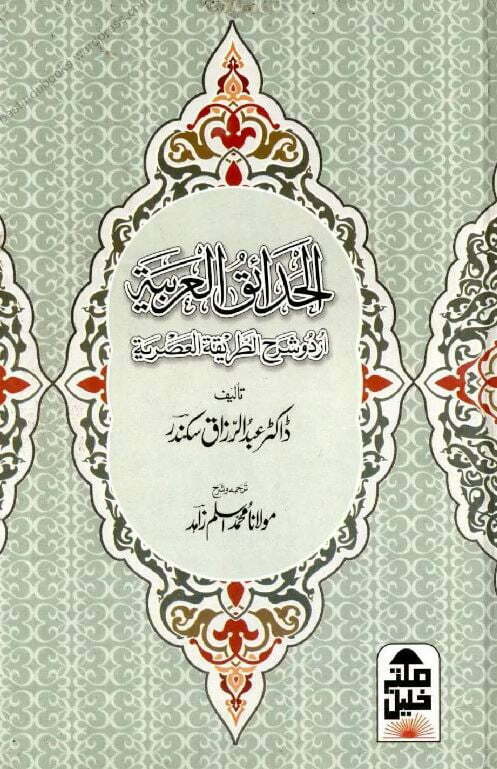 الحدائق العربية
اردو شرح الطریقة العصریة
تالیف
ڈاکٹر عبد الرزاق سکندر
ترجمہ و شرح
مولانا محمد اسلم زاہد